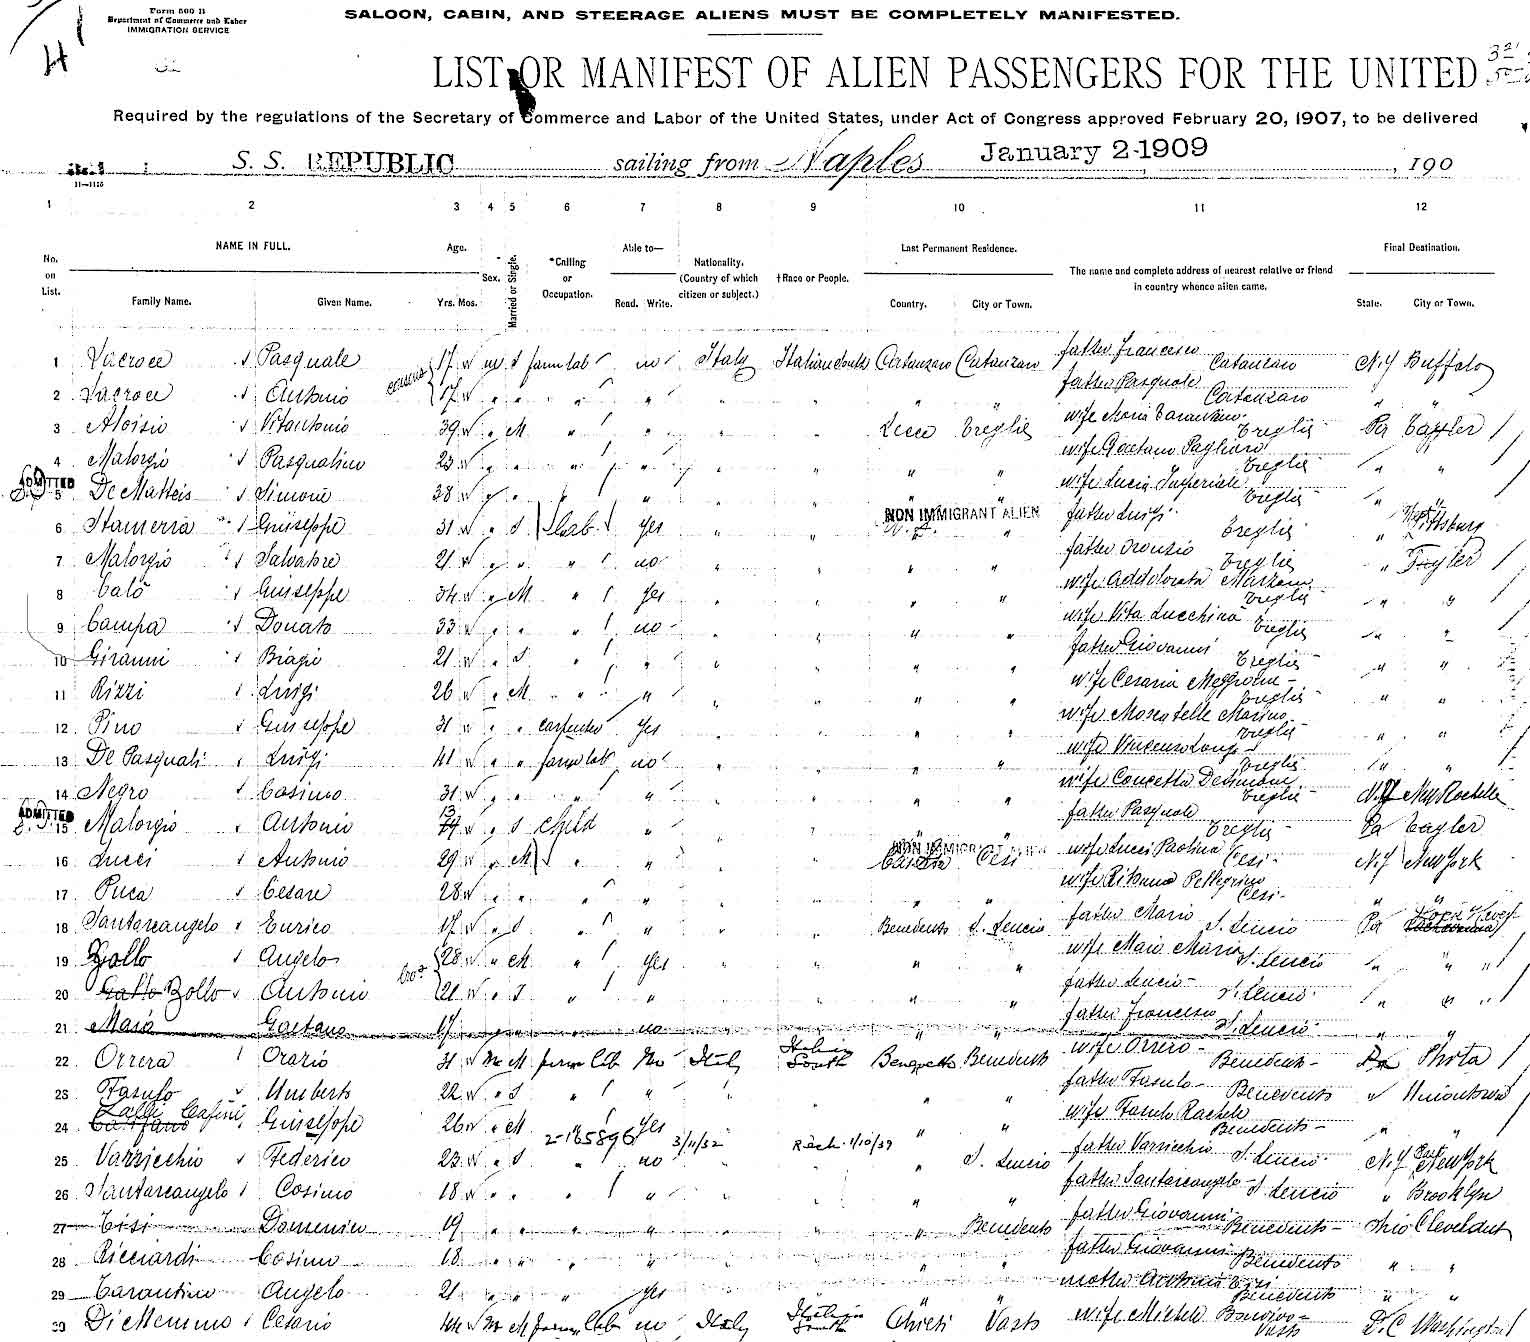 Form 500 B
Department of Commerce and Labor
IMMIGRATION SERVICE
SALOON, CABIN, AND STEERAGE ALIENS MUST BE COMPLETELY MANIFESTED.
LIST OR MANIFEST OF ALIEN PASSENGERS FOR THE UNITED
Required by the regulations of the Secretary of Commerce and Labor of the United States, under Act of Congress approved February 20, 1907, to be delivered
S. S. REPUBLIC sailing from Naples January 2-1909 , 190
1 2 3 4 5 6 7 8 9 10 11 12
No. on List. NAME IN FULL. Family Name. Given Name. Age. Yrs. Mos. Sex. Married or Single. *Calling or Occupation. Able to— Read. Write. Nationality. (Country of which citizen or subject.) †Race or People. Last Permanent Residence. Country. City or Town. The name and complete address of nearest relative or friend in country whence alien came. Final Destination. State. City or Town.
1 Lacroce Pasquale 17 m S farm lab no Italy Italian South Catanzaro Catanzaro father Francesco Catanzaro N.Y Buffalo
2 Lacroce Antonio 17 " " " " " father Pasquale Catanzaro " "
3 Aloisio Vitantonio 39 " M " " " Lecce Treglie wife Maria Tarantino Treglie Pa
4 Malorgio Pasqualino 23 " " " " wife Gaetana Pagliaro Treglie " "
ADMITTED
5 De Matteis Simone 38 " " " wife Lucia Imperiale Treglie "
NON IMMIGRANT ALIEN
6 Stamerra Giuseppe 31 " S Lab. yes father Luigi Treglie " Pittsburg
7 Malorgio Salvatore 21 " " " no father Oronzio Treglie "
8 Calò Giuseppe 34 " M " yes wife Addolorata Treglie " "
9 Campa Donato 33 " " " no wife Vita Lucchina Treglie " "
10 Giranni Biagio 21 " S " " father Giovanni Treglie " "
11 Rizzi Luigi 26 " M " " wife Cesaria Treglie " "
12 Pino Giuseppe 31 " " carpenter yes wife Marino Treglie " "
13 De Pasquali Luigi 41 " " farm lab no wife Vincenza Longo Treglie " "
14 Negro Cosimo 31 " " " " wife Concetta Desimone Treglie N.Y New Rochelle
ADMITTED
15 Malorgio Antonio 13 " S child " father Pasquale Treglie Pa
NON IMMIGRANT ALIEN
16 Lucci Antonio 29 " M " " Caserta Cesi wife Lucci Paolina Cesi N.Y New York
17 Puca Cesare 28 " " " " wife Pellegrino Cesi " "
18 Santarcangelo Enrico 17 " S " " Benevento S. Leucio father Mario S. Leucio Pa
19 Zollo Angelo 28 " M " yes " " wife Maio Maria S. Leucio " "
20 Gallo Zollo Antonio 21 " S " " " " father Leucio S. Leucio " "
21 Masa Gaetano 17 " " " no " " father Francesco S. Leucio " "
22 Orrera Orazio 31 m M farm lab no Italy Italian South Benevento Benevento wife Orrero Benevento Pa Phila
23 Fasulo Umberto 22 " S " " " " father Fasulo Benevento " Uniontown
24 Giuseppe 26 " M " yes " " wife Fasulo Rachele Benevento " "
2-165896 3/11/52 1/10/39
25 Varricchio Federico 23 " S " no " S. Leucio father Varricchio S. Leucio N.Y New York
26 Santarcangelo Cosimo 18 " " " " " " father Santarcangelo S. Leucio " Brooklyn
27 Tisi Domenico 19 " " " " " Benevento father Giovanni Benevento Ohio Cleveland
28 Ricciardi Cosimo 18 " " " " " " father Giovanni Benevento " "
29 Tarantino Angelo 21 " " " yes " " mother Antonia Tisi Benevento " "
30 Di Memmo Cesario 44 m M farm lab no Italy Italian South Chieti Vasto wife Michele Vasto D.C Washington